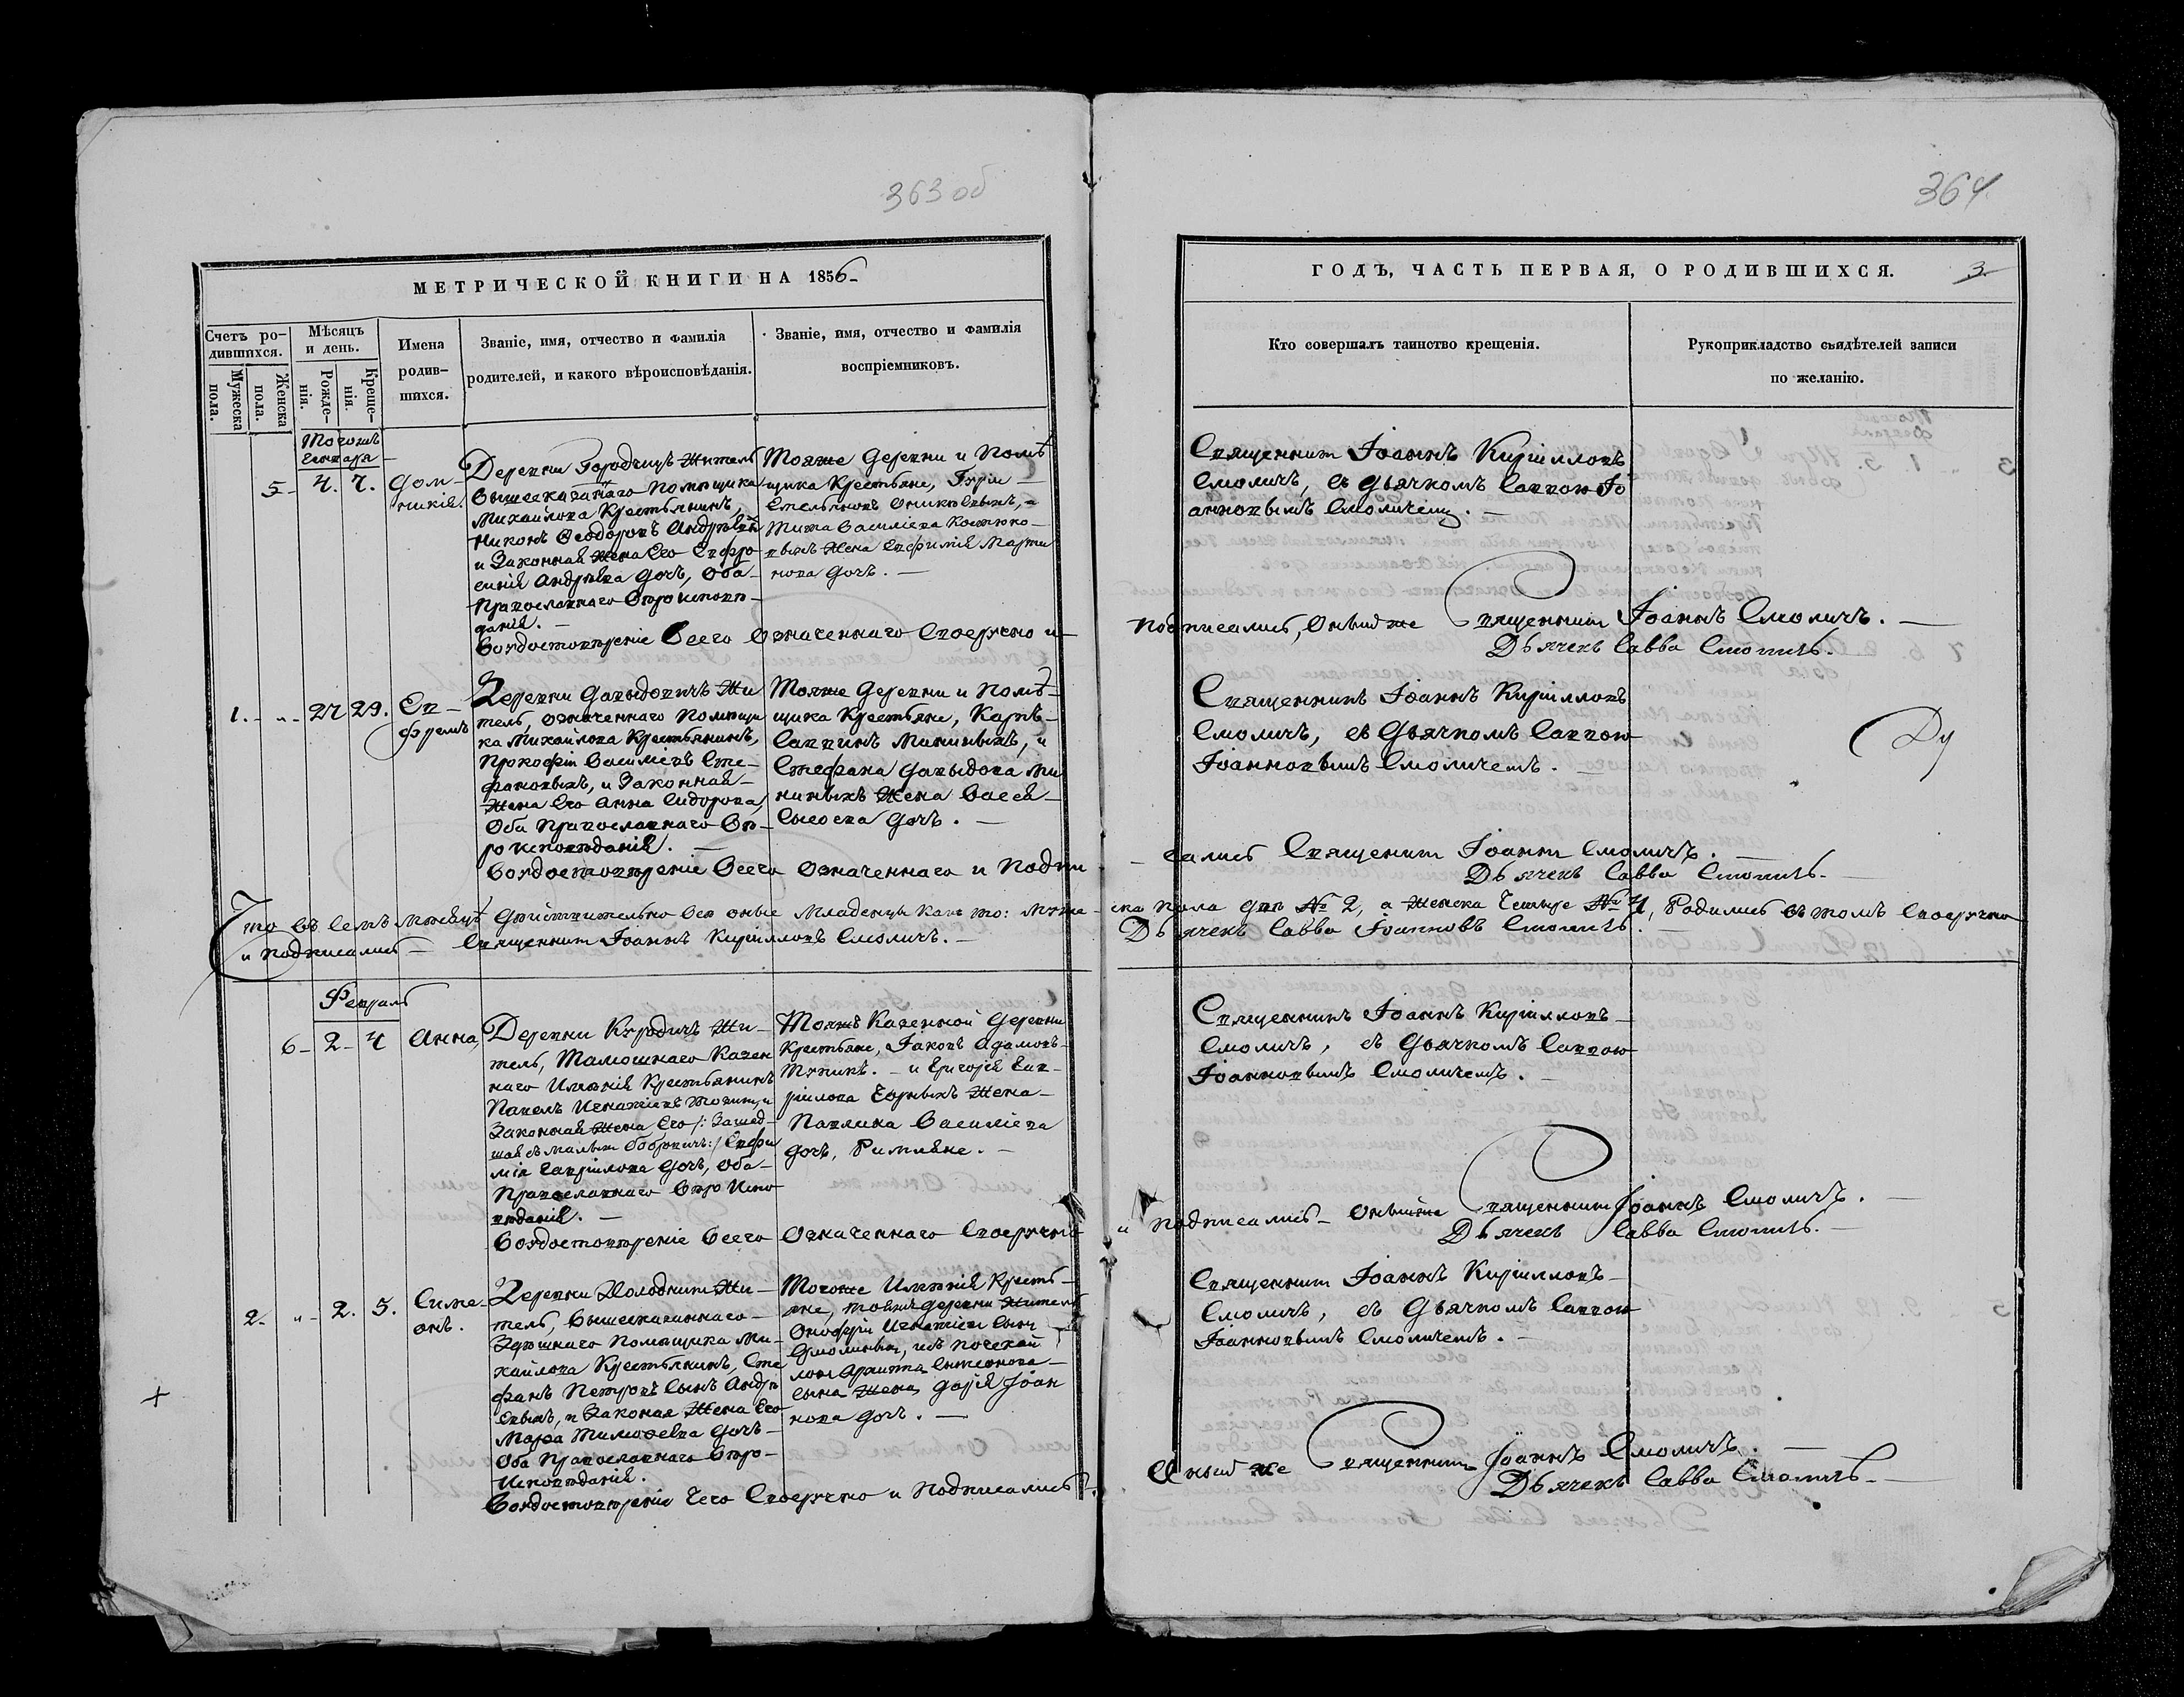 363 об
364
МЕТРИЧЕСКОЙ КНИГИ НА 1856
ГОДЪ, ЧАСТЬ ПЕРВАЯ, О РОДИВШИХСЯ.
3
Счетъ ро-
дившихся.
Мужеска
пола.
Женска
пола.
Мѣсяцъ
и день.
Рожде-
нія.
Креще-
нія.
Имена
родив-
шихся.
Званіе, имя, отчество и фамилія
родителей, и какого вѣроисповѣданія.
Званіе, имя, отчество и фамилія
воспріемниковъ.
Кто совершалъ таинство крещенія.
Рукоприкладство свидѣтелей записи
по желанію.
Тогожъ
Генваря
5 4. 7.
Дом-
никія.
Деревни Городчицъ Житель
вышесказаннаго помѣщика
Михайлова Крестьянинъ,
Никонъ Ѳеодоровъ
и Законная Жена Его Евфро
синія Андрѣева дочь, Оба
Православнаго Вѣроисповѣ
данія.
Тояже деревни и помѣ
щика Крестьяне,
Емельяновъ
Василіева
Жена Евфимія Марти
нова дочь.
Священникъ Іоаннъ Кирилловъ
Смоличъ, съ дьячкомъ Саввою Іо
анновымъ Смоличемъ.
Во удостовѣреніе Всего Означеннаго Своеручно и
подписались, Оный же Священникъ Іоаннъ Смоличъ.
Дьячекъ Савва Смоличъ.
1. „ 27 29.
Еф-
фремъ
Деревни Давыдовичъ Жи
тель, означеннаго помѣщи
ка Михайлова Крестьянинъ,
Прокофій Василіевъ Сте-
фановыхъ, и Законная
Жена Его Анна Сидорова,
Оба Православнаго Вѣ-
роисповѣданія.
Тояже деревни и помѣ-
щика Крестьяне, Карпъ
Саввинъ Мининыхъ, и
Стефана Давыдова Ми
ниныхъ Жена Васса
Сысоева дочь.
Священникъ Іоаннъ Кирилловъ
Смоличъ, съ дьячкомъ Саввою
Іоанновымъ Смоличемъ.
Во удостовѣреніе Всего Означеннаго и Подпи
сались Священникъ Іоаннъ Смоличъ.
Дьячекъ Савва Смоличъ.
Что въ семъ мѣсяцѣ дѣйствительно всѣ оные младенцы какъ то: муже-
ска пола два № 2, а женска четыре № 4, Родились въ томъ Своеручно
и подписались Священникъ Іоаннъ Кирилловъ Смоличъ.
Дьячекъ Савва Іоанновъ Смоличъ.
Февраль
6 2 4
Анна,
Деревни Куродичъ Жи-
тель, Тамошнаго Казен
наго Имѣнія Крестьянинъ
Павелъ Игнатіевъ
Законная Жена Его
Евфи
мія Гавріилова дочь, Оба
Православнаго Вѣро Испо
вѣданія.
Тояжъ Казенной деревни
Крестьяне, Іаковъ Адамовъ
и Григорія Гав-
ріилова Жена
Павлина Василіева
дочь, Римляне.
Священникъ Іоаннъ Кирилловъ
Смоличъ, съ дьячкомъ Саввою
Іоанновымъ Смоличемъ.
Во удостовѣреніе Всего Означеннаго Своеручно
и подписались Оный же Священникъ Іоаннъ Смоличъ.
Дьячекъ Савва Смоличъ.
2. „ 2. 5.
Симе-
онъ.
Деревни Холодникъ Жи-
тель, вышесказаннаго
помѣщика Ми-
хайлова Крестьянинъ, Сте
фанъ Петровъ Сынъ Андрѣ
евыхъ, и Законая Жена Его
Марѳа Тимоѳеева дочь
Оба Православнаго Вѣро-
Исповѣданія.
Тогоже Имѣнія Кресть-
яне, тояжъ деревни Житель
Онофрій Игнатіевъ сынъ
Симеонова
сына Жена Дарія Іоан
нова дочь.
Священникъ Іоаннъ Кирилловъ
Смоличъ, съ дьячкомъ Саввою
Іоанновымъ Смоличемъ.
Во удостовѣреніе Чего Своеручно и Подписались
Оный же Священникъ Іоаннъ Смоличъ.
Дьячекъ Савва Смоличъ.